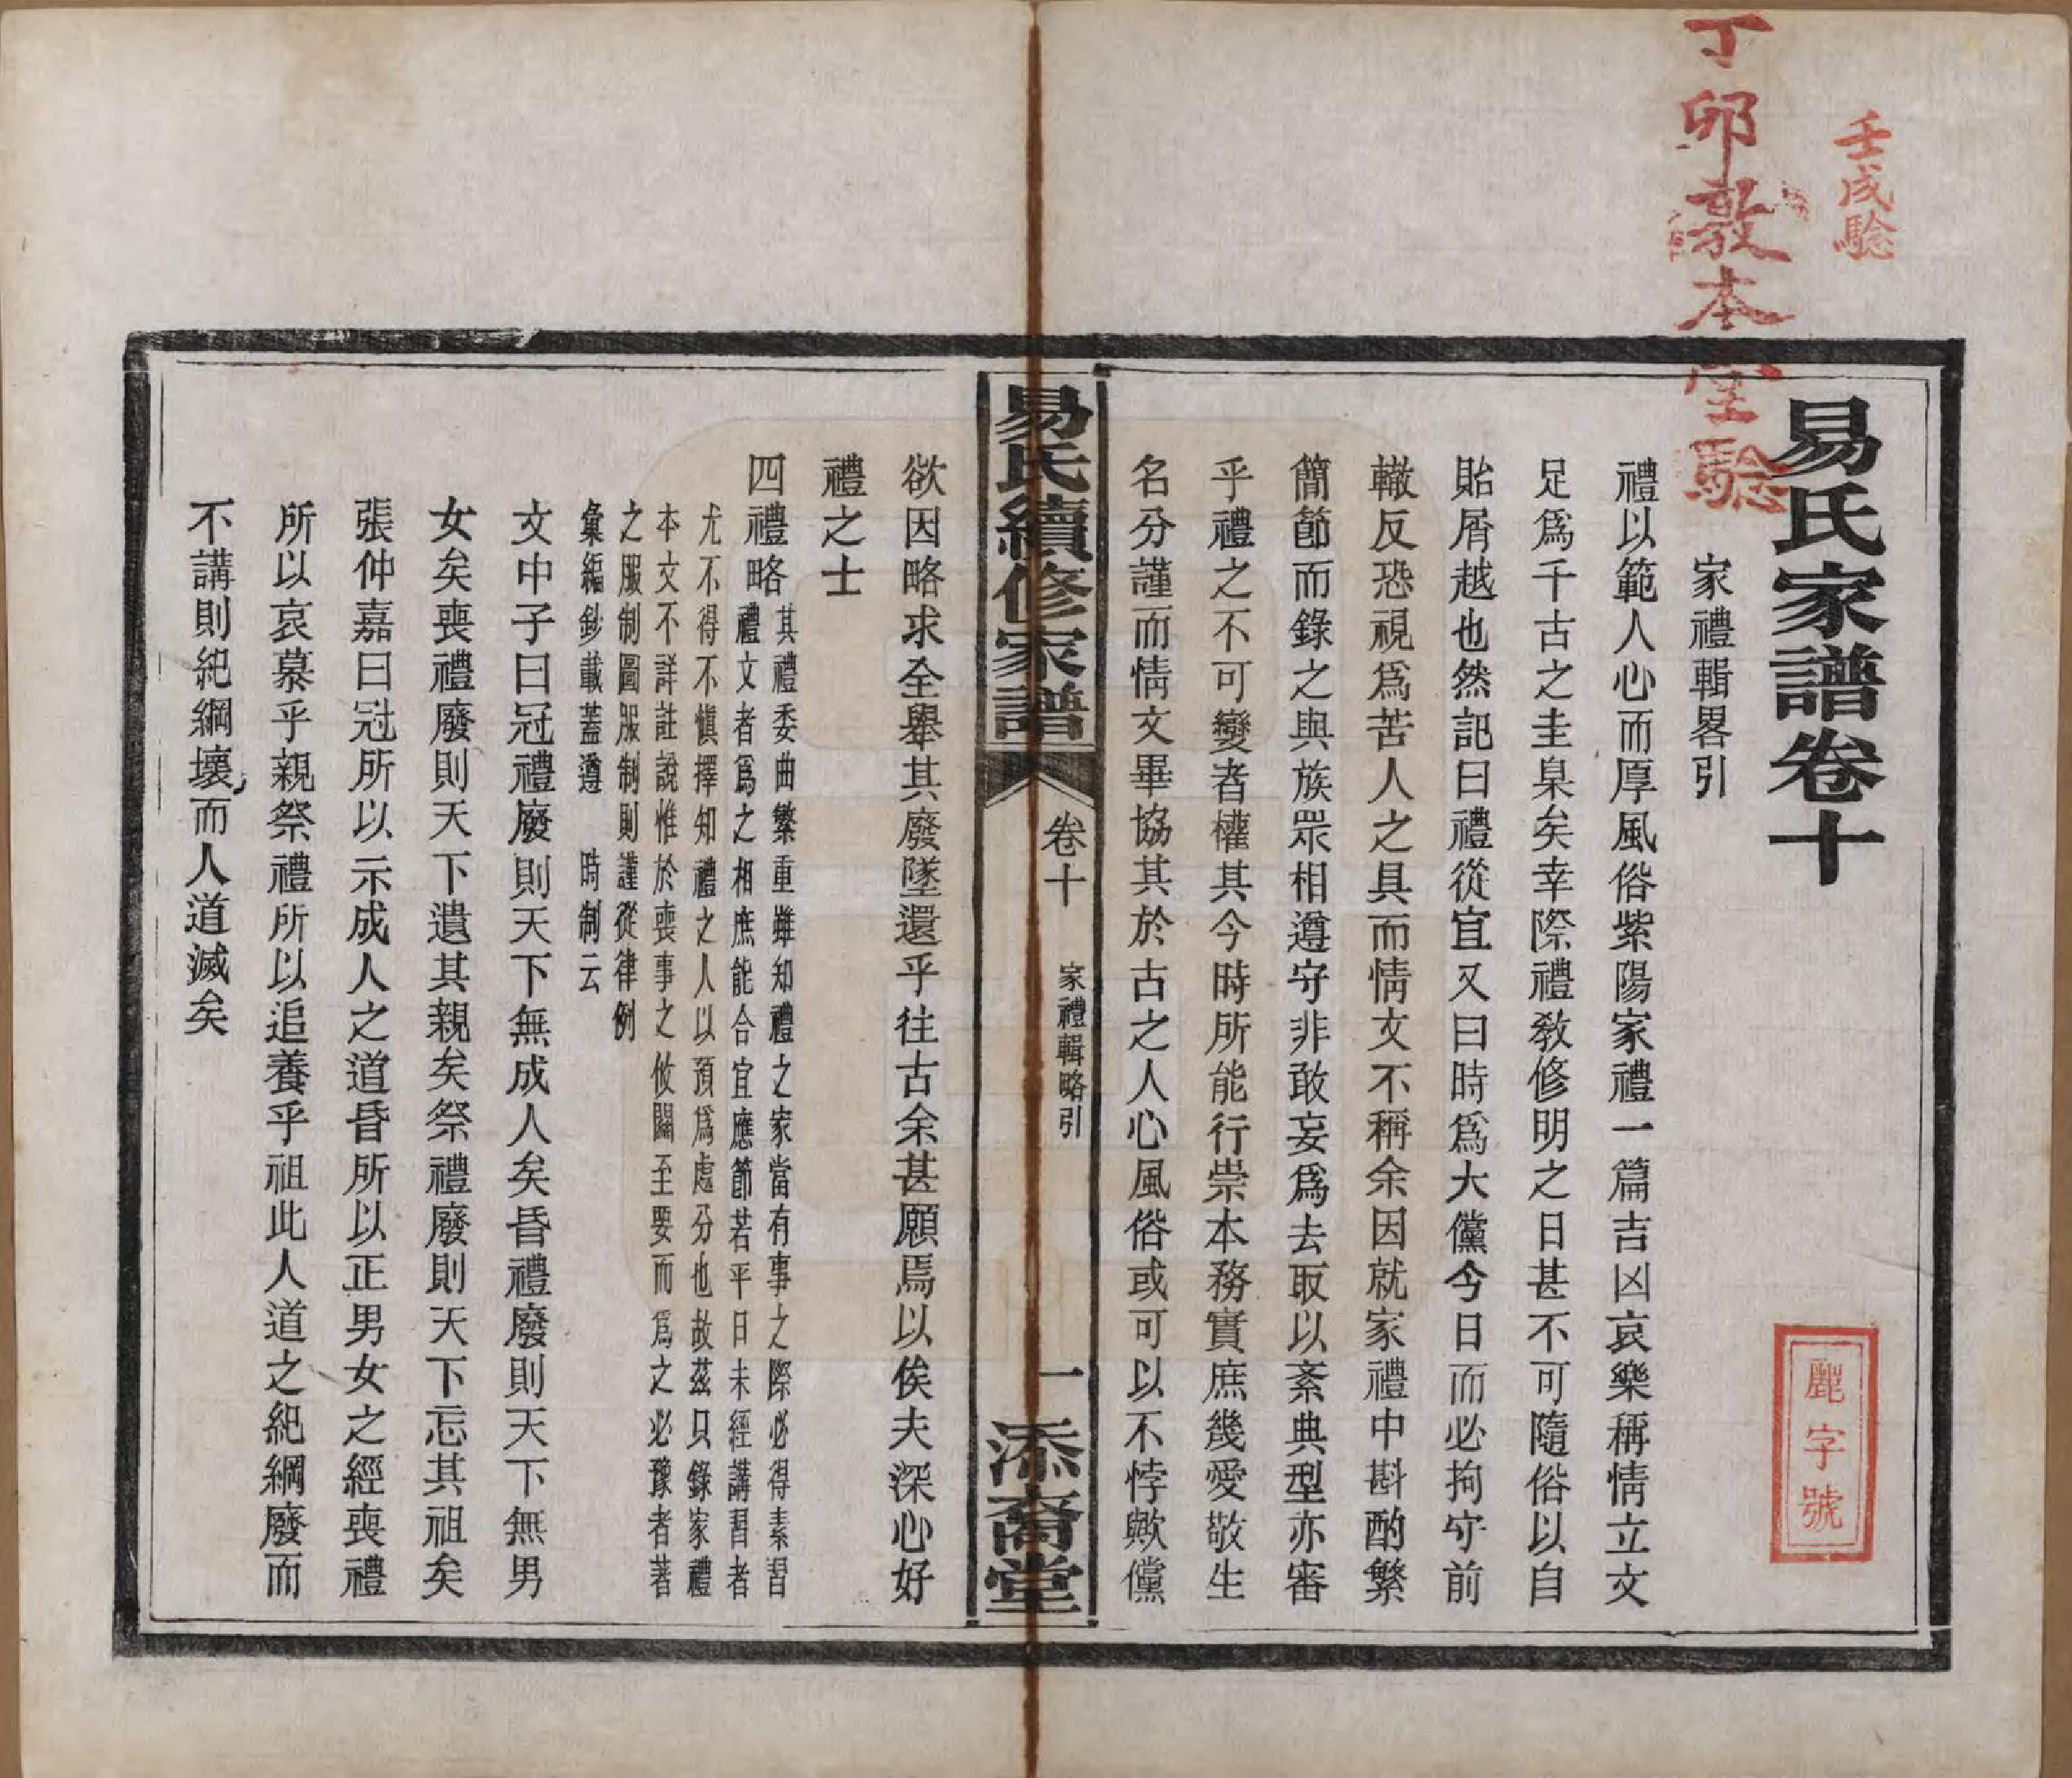 壬戌騐
丁卯敦本堂騐
易氏家譜卷十
麗字號
家禮輯畧引
禮以範人心而厚風俗紫陽家禮一篇吉凶哀樂稱情立文
足爲千古之圭臬矣幸際禮敎修明之日甚不可隨俗以自
貽屑越也然記曰禮從宜又曰時爲大儻今日而必拘守前
轍反恐視爲苦人之具而情文不稱余因就家禮中斟酌繁
簡節而錄之與族眾相遵守非敢妄爲去取以紊典型亦審
乎禮之不可變者權其今時所能行崇本務實庶幾愛敬生
名分謹而情文畢協其於古之人心風俗或可以不悖歟儻
易氏續修家譜
卷十
家禮輯略引
一
添裔堂
欲因略求全舉其廢墜還乎往古余甚願焉以俟夫深心好
禮之士
四禮略
其禮委曲繁重雖知禮之家當有事之際必得素習
禮文者爲之相庶能合宜應節若平日未經講習者
尤不得不愼擇知禮之人以預爲處分也故茲只錄家禮
本文不詳註說惟於喪事之攸關至要而爲之必豫者著
之服制圖服制則謹從律例
彙編鈔載蓋遵 時制云
文中子曰冠禮廢則天下無成人矣昏禮廢則天下無男
女矣喪禮廢則天下遺其親矣祭禮廢則天下忘其祖矣
張仲嘉曰冠所以示成人之道昏所以正男女之經喪禮
所以哀慕乎親祭禮所以追養乎祖此人道之紀綱廢而
不講則紀綱壞而人道滅矣